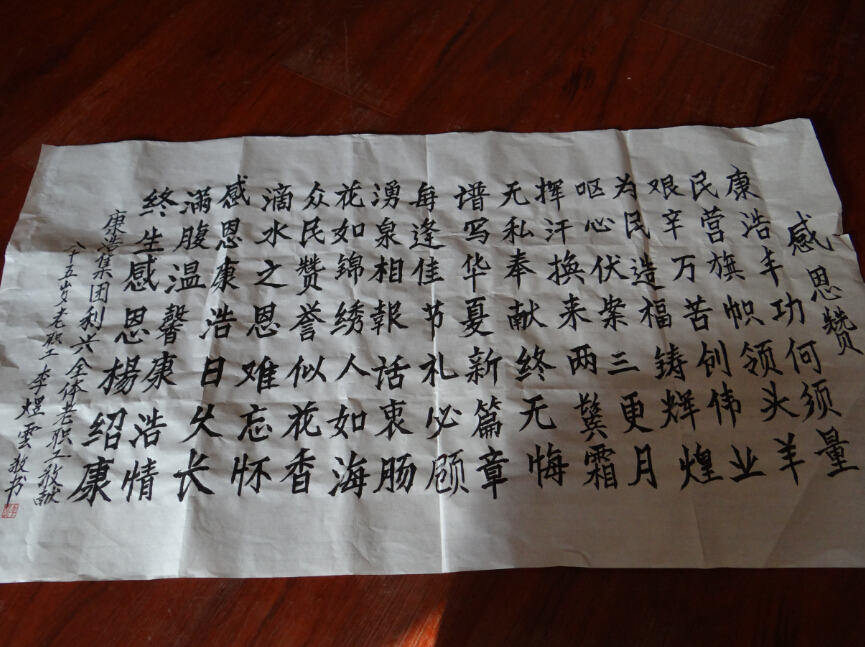 感恩赞
康浩丰功何须量
民营旗帜领头羊
艰辛万苦创伟业
为民造福铸辉煌
呕心伏案三更月
挥汗换来两鬓霜
无私奉献终无悔
谱写华夏新篇章
每逢佳节礼必顾
湧泉相報话衷肠
花如锦绣人如海
众民赞誉似花香
滴水之恩难忘怀
感恩康浩日久长
满腹温馨康浩情
终生感恩楊绍康
康浩集团利兴全体老职工敬献
八十五岁老职工李煜雲敬书